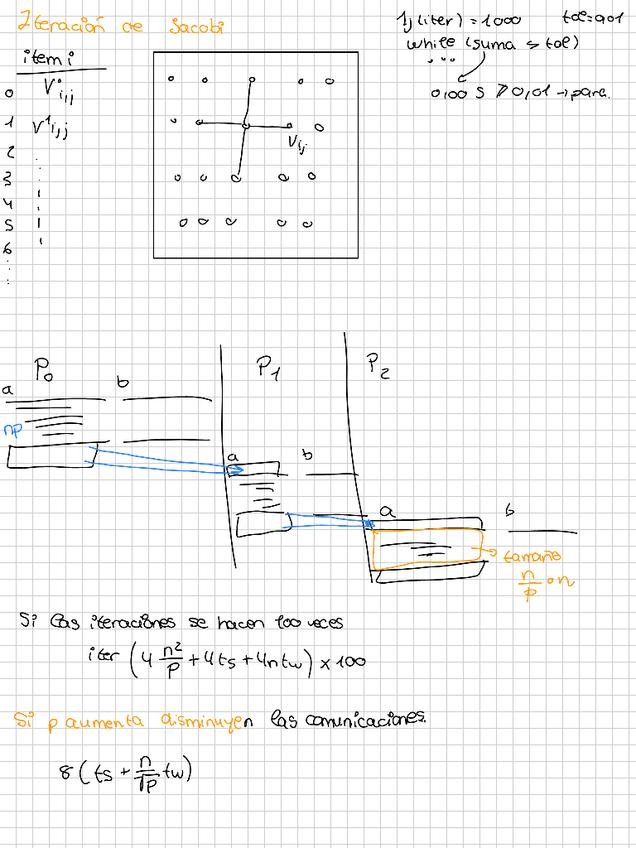 Iteración de Jacobi
1) (iter) = 1000 tol=0,01
while (suma > tol)
...
0,005 > 0,01 → para.
item i
0 V⁰i,j
1 V¹i,j
2
3
4
5
6
Vi,j
P₀ P₁ P₂
a b
np
a b
a b
tamaño
n/p · n
Si las iteraciones se hacen 100 veces
iter (4 n²/p + 4ts + 4ntw) x 100
Si p aumenta disminuyen las comunicaciones.
8 (ts + n/√p tw)